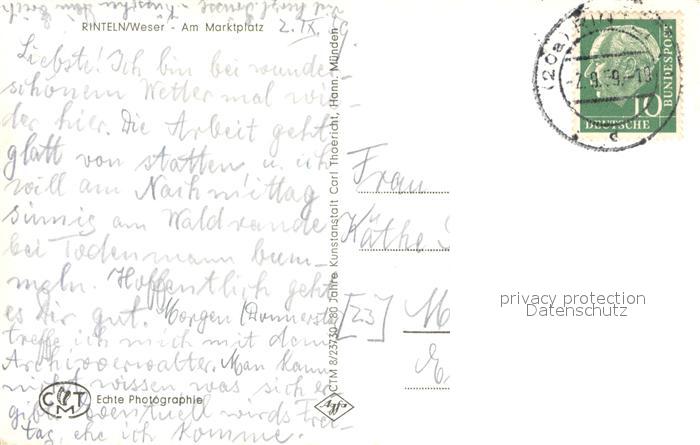 RINTELN/Weser - Am Marktplatz
2. IX. 59
Liebste! Ich bin bei wunder-
schönem Wetter mal wie-
der hier. Die Arbeit geht
glatt von statten u. ich
will am Nachmittag
sinnig am Waldrande
bei Todenmann bum-
meln. Hoffentlich geht
es dir gut. Morgen (Donnerst.)
treffe ich mich mit dem
Archivverwalter. Man kann
nicht wissen was sich er-
gibt. Eventuell wirds Frei-
tag, ehe ich komme.
CTM
Echte Photographie
CTM 8/23730 80 Jahre Kunstanstalt Carl Thoericht, Hann. Münden
Frau
Käthe
[23] M
(20a) RIN
-2.9.59-18
d
10
DEUTSCHE
BUNDESPOST
privacy protection
Datenschutz